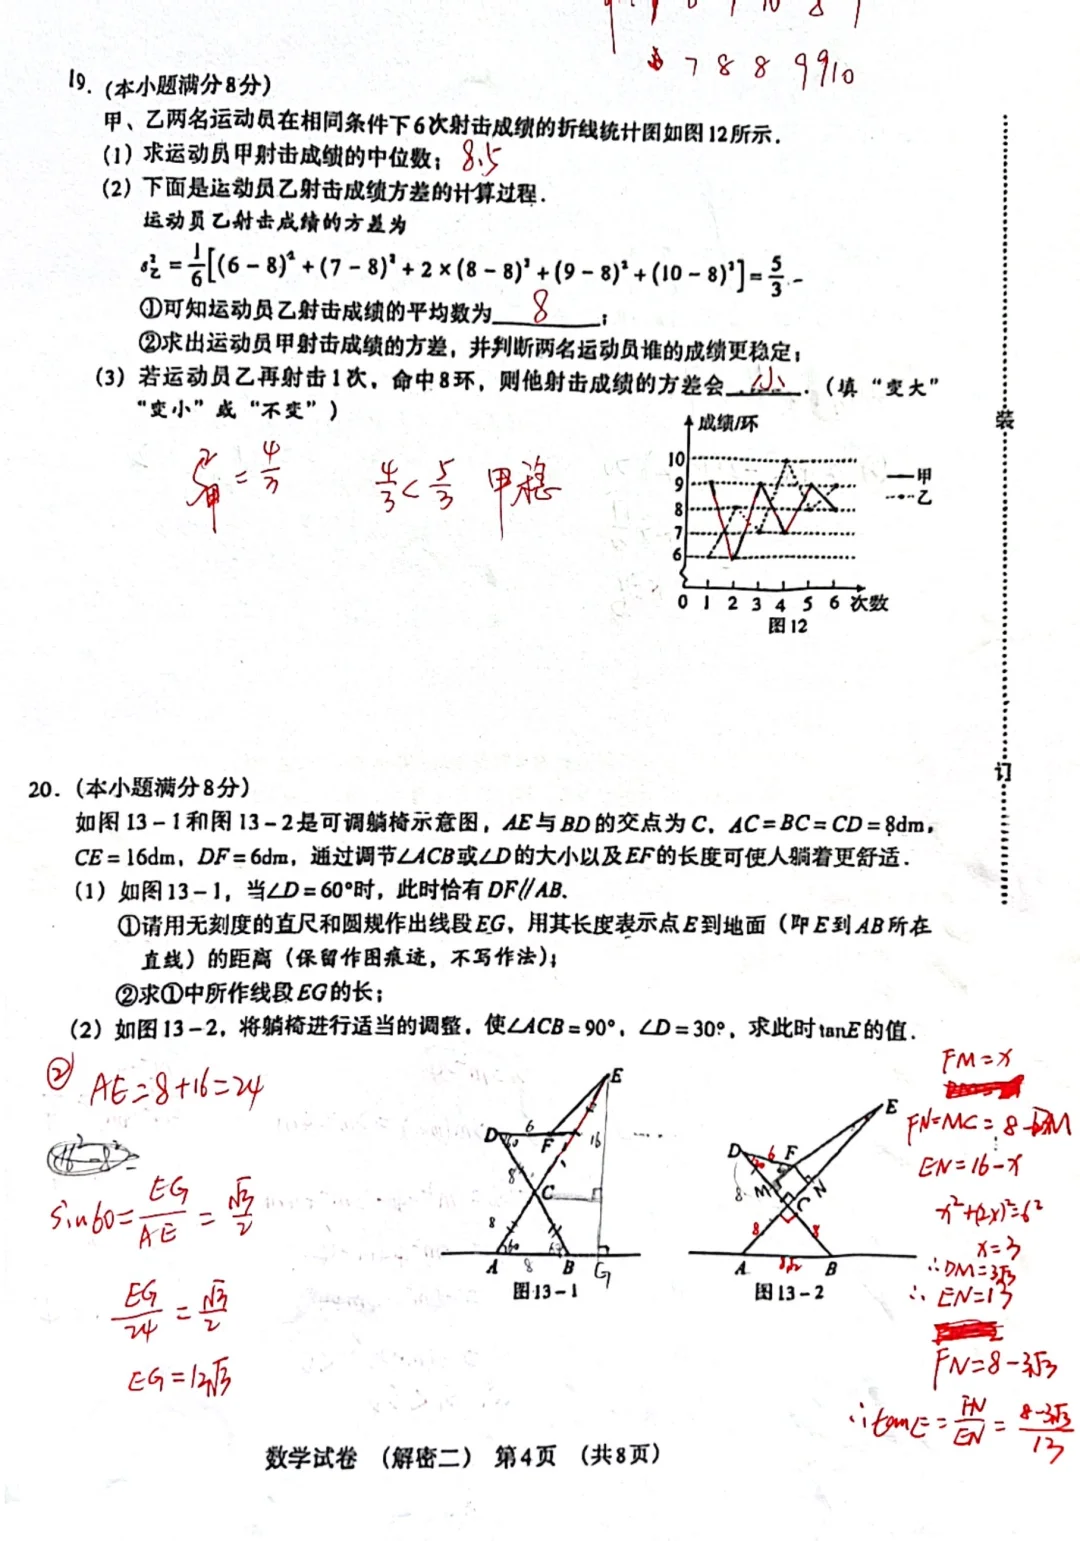 6 7 8 8 9 9 10
19. (本小题满分8分)
甲、乙两名运动员在相同条件下6次射击成绩的折线统计图如图12所示.
(1) 求运动员甲射击成绩的中位数; 8.5
(2) 下面是运动员乙射击成绩方差的计算过程.
运动员乙射击成绩的方差为
s²乙 = 1/6[(6-8)²+(7-8)²+2×(8-8)²+(9-8)²+(10-8)²]=5/3.
①可知运动员乙射击成绩的平均数为 8 ;
②求出运动员甲射击成绩的方差，并判断两名运动员谁的成绩更稳定;
(3) 若运动员乙再射击1次，命中8环，则他射击成绩的方差会 小 .(填“变大”
“变小”或“不变”)
S²甲 = 4/3 4/3 < 5/3 甲稳
成绩/环
10
9
8
7
6
甲
乙
0 1 2 3 4 5 6 次数
图12
装
订
20. (本小题满分8分)
如图13-1和图13-2是可调躺椅示意图，AE与BD的交点为C，AC=BC=CD=8dm，
CE=16dm，DF=6dm，通过调节∠ACB或∠D的大小以及EF的长度可使人躺着更舒适.
(1) 如图13-1，当∠D=60°时，此时恰有DF∥AB.
①请用无刻度的直尺和圆规作出线段EG，用其长度表示点E到地面(即E到AB所在
直线)的距离(保留作图痕迹，不写作法);
②求①中所作线段EG的长;
(2) 如图13-2，将躺椅进行适当的调整，使∠ACB=90°，∠D=30°，求此时tanE的值.
② AE=8+16=24
sin60=EG/AE=√3/2
EG/24=√3/2
EG=12√3
E
D 6 F 16
60
8
C
8
A 60 8 B G
图13-1
E
D 6 F
30
8 M N
C
8 8
A 8√2 B
图13-2
FM=x
FN=MC=8-DM
EN=16-x
x²+(2x)²=6²
x=3
∴DM=3√3
∴EN=13
FN=8-3√3
∴tanE=FN/EN=8-3√3/13
数学试卷 (解密二) 第4页 (共8页)